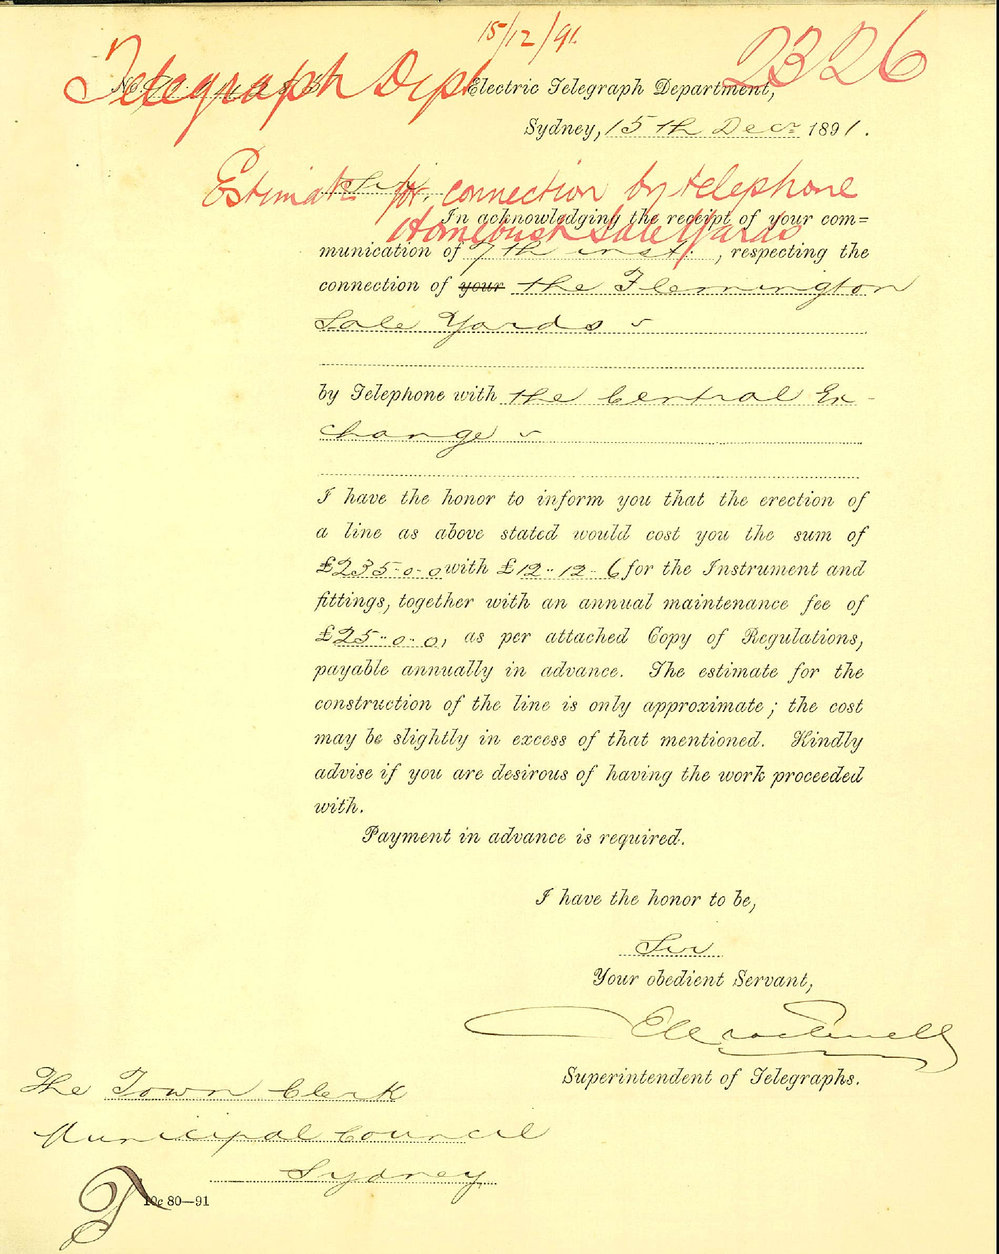 15/12/91
2326
Telegraph Dept
No.
Electric Telegraph Department,
Sydney, 15th Decr 1891.
Estimate for connection by telephone
Homebush Sale Yards
Sir,
In acknowledging the receipt of your com=
munication of 7th inst:, respecting the
connection of your the Flemington
Sale Yards
by Telephone with the Central Ex-
change
I have the honor to inform you that the erection of
a line as above stated would cost you the sum of
£235-0-0 with £12-12-6 for the Instrument and
fittings, together with an annual maintenance fee of
£25-0-0, as per attached Copy of Regulations,
payable annually in advance. The estimate for the
construction of the line is only approximate; the cost
may be slightly in excess of that mentioned. Kindly
advise if you are desirous of having the work proceeded
with.
Payment in advance is required.
I have the honor to be,
Sir
Your obedient Servant,
Superintendent of Telegraphs.
The Town Clerk
Municipal Council
Sydney,
10c 80—91